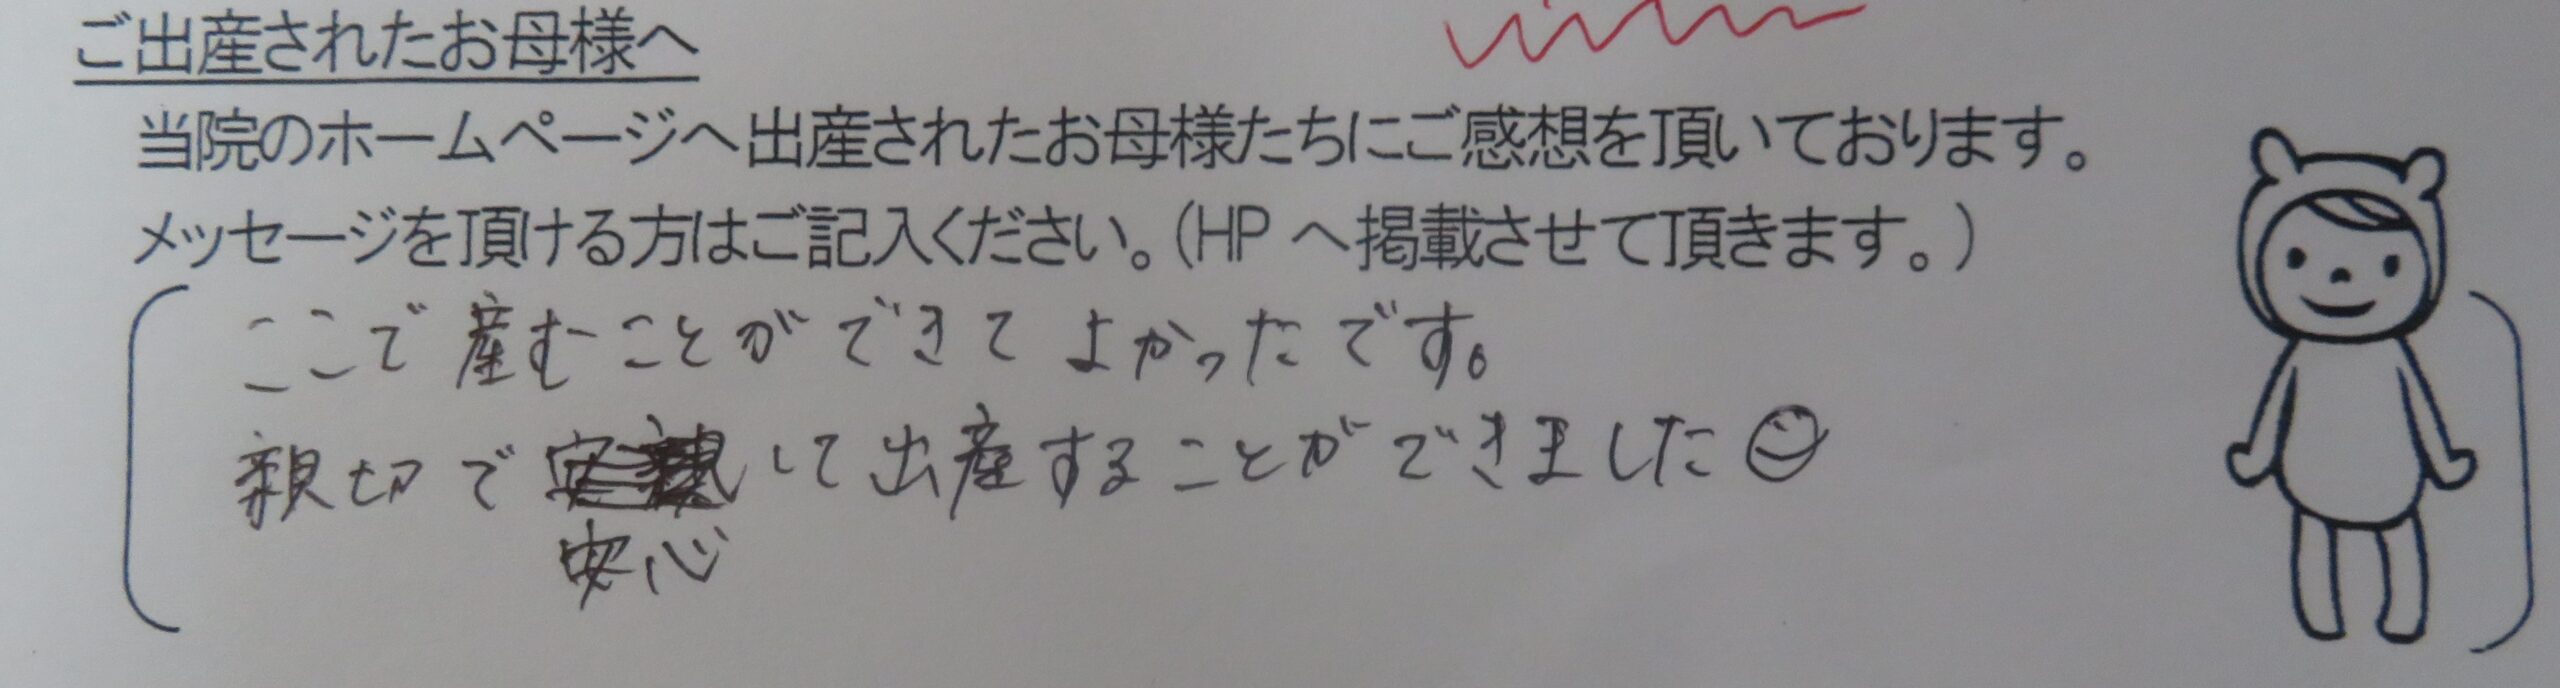 ご出産されたお母様へ
当院のホームページへ出産されたお母様たちにご感想を頂いております。
メッセージを頂ける方はご記入ください。(HP へ掲載させて頂きます。)
ここで産むことができてよかったです。
親切で して出産することができました
安心